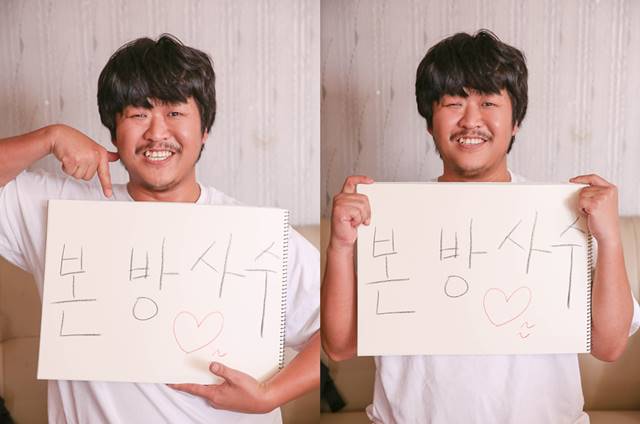 본방사수
본방사수